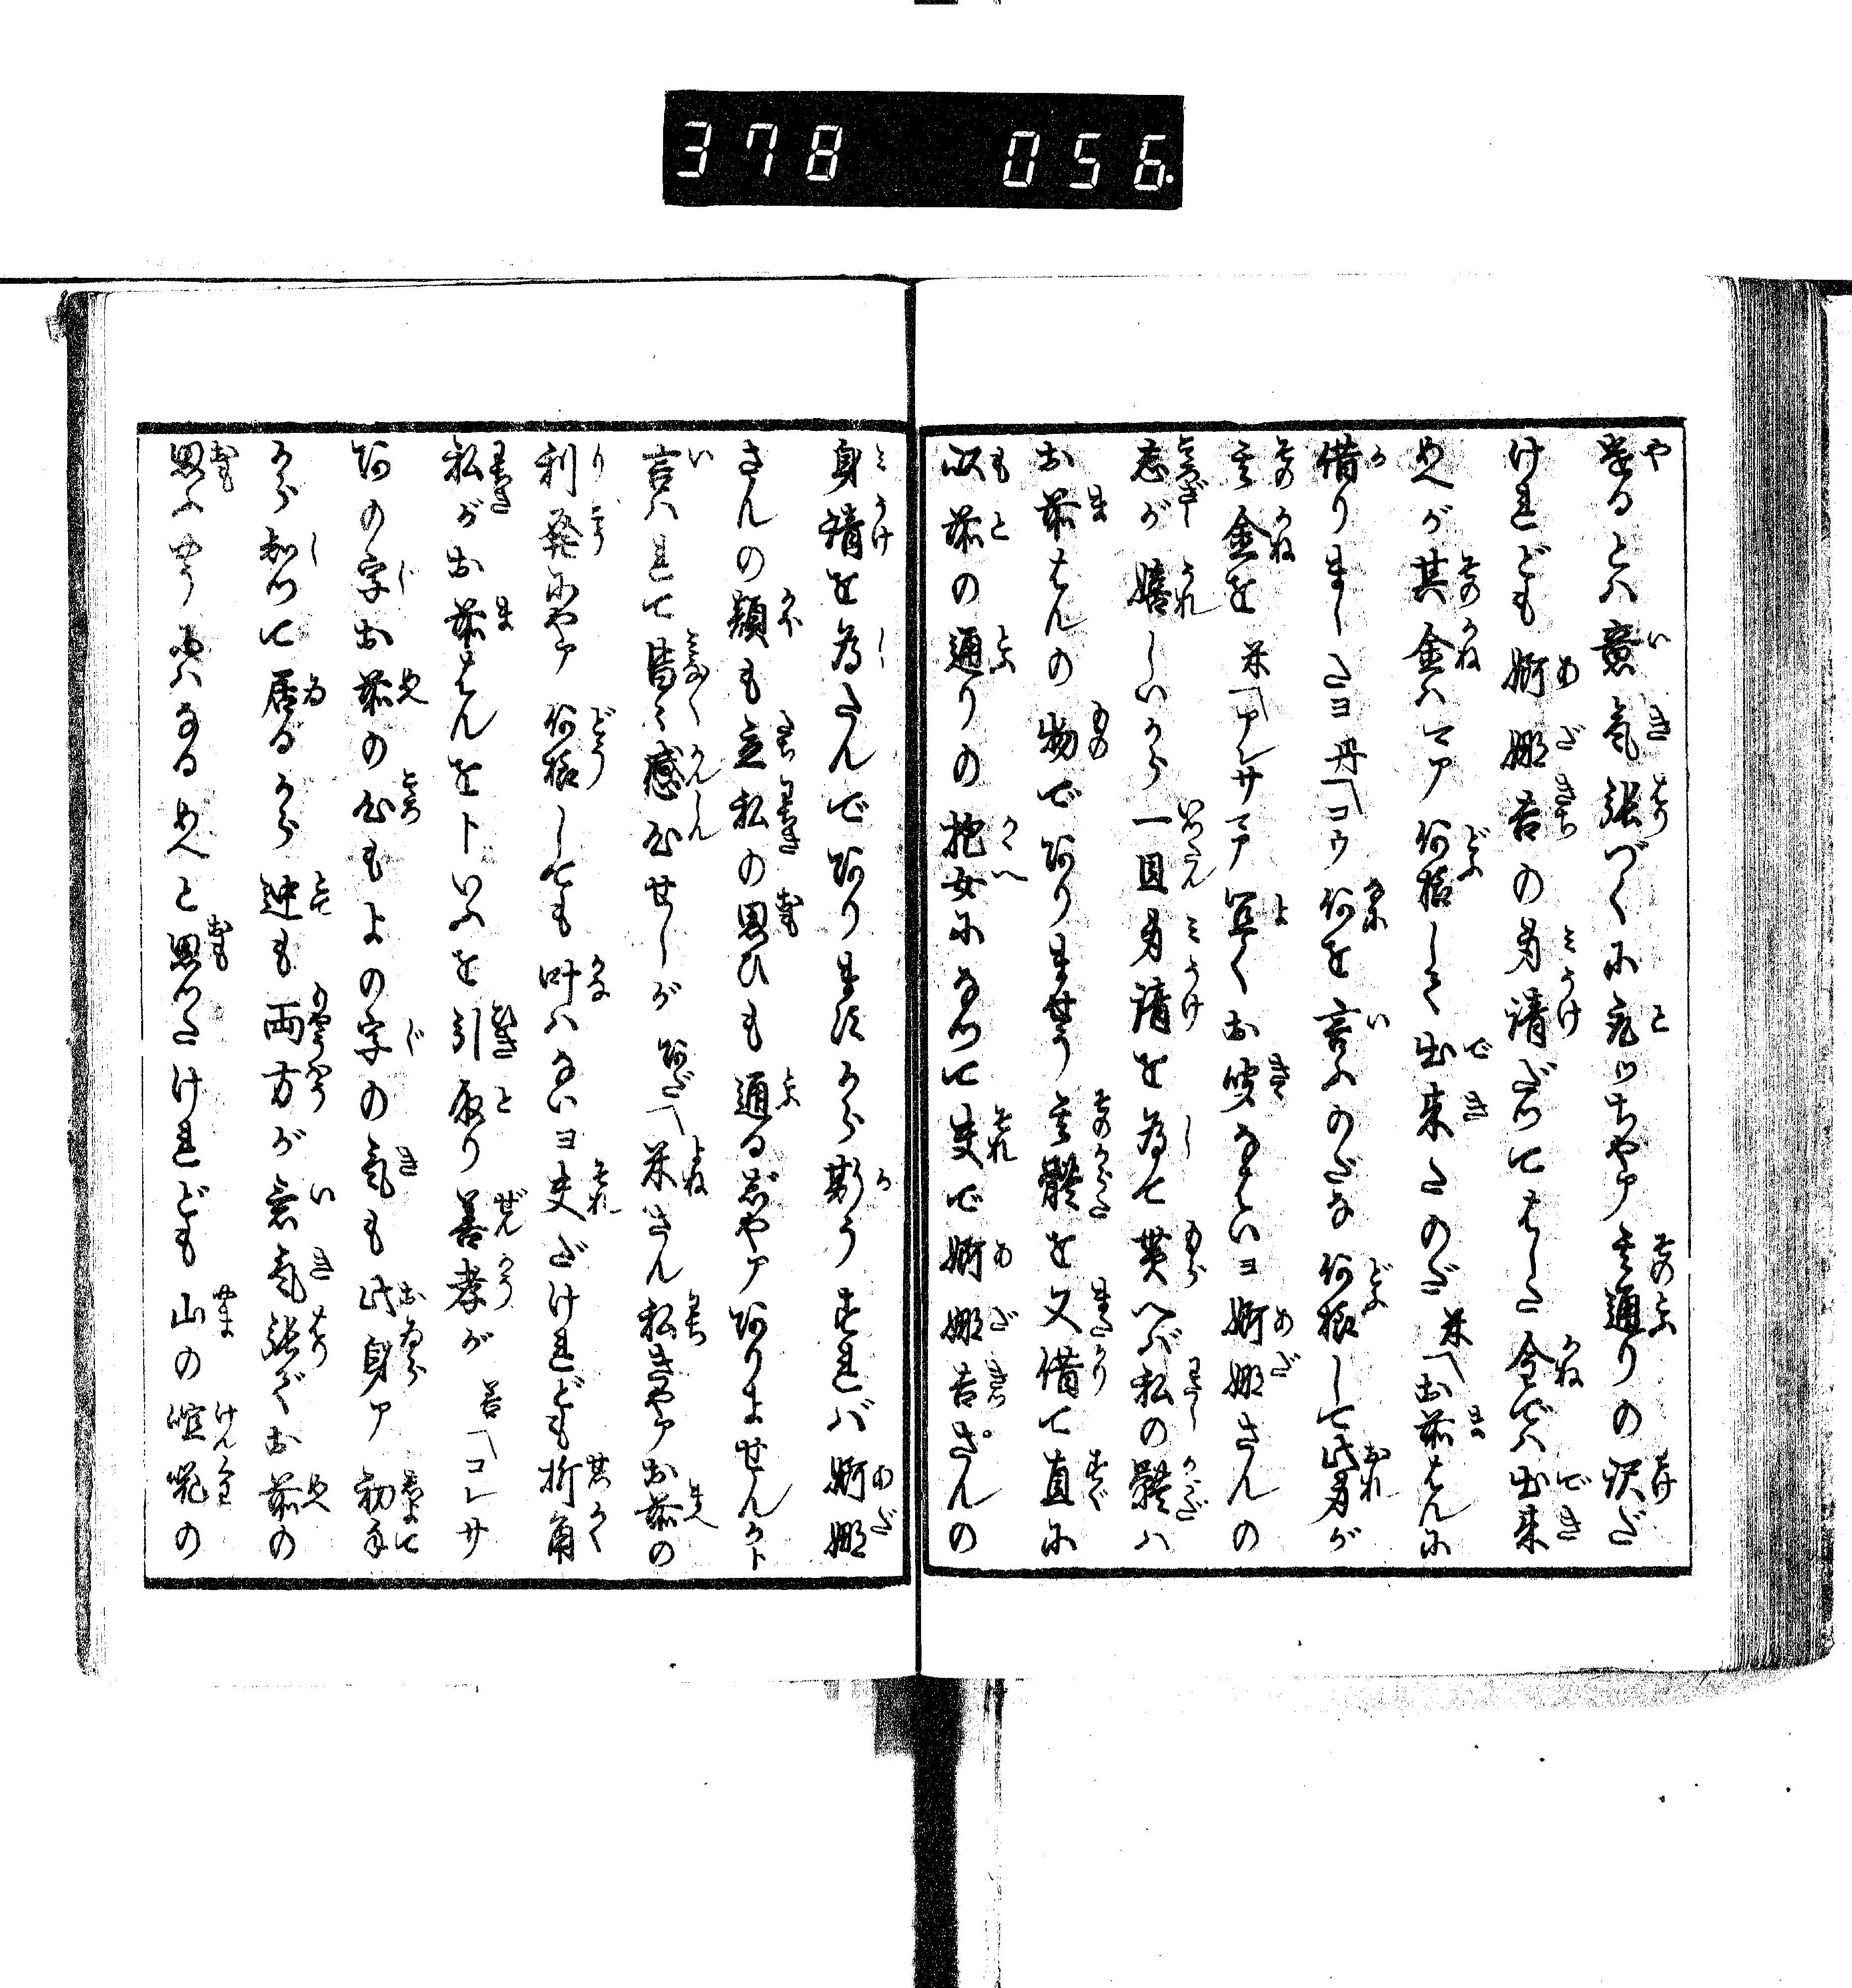 378 056.
挙るとハ意氣張づくに究ッちやア其通りの訳だ
けれども婀娜吉の身請だつてはした金でハ出来
めへが其金ハマア何様して出来たのだ 米「お前はんに
借りましたヨ 丹「コウ何を言ふのだな何様して此身が
其金を 米「アレサマア冝くお聞なはいヨ婀娜さんの
志が嬉しいから一旦身請を為て貰へば私の體ハ
お前はんの物でありませう其體を又借て直に
以前の通りの抱女になつて夫で婀娜吉さんの
身請を為たんでありますから斯うすれバ婀娜
さんの顔も立私の思ひも通るぢやアありませんかト
言ハれて皆々感心せしが あだ「米さん私きやアお前の
利発にやア何様しても叶ハないヨ夫だけれども折角
私がお前はんをトいふを引取り善孝が 善「コレサ
あの字お前の心もよの字の氣も此身ア初手
から知つて居るから迚も両方が意氣張ぐお前の
思ふやうにハなるめへと思つたけれども山の喧嘩の